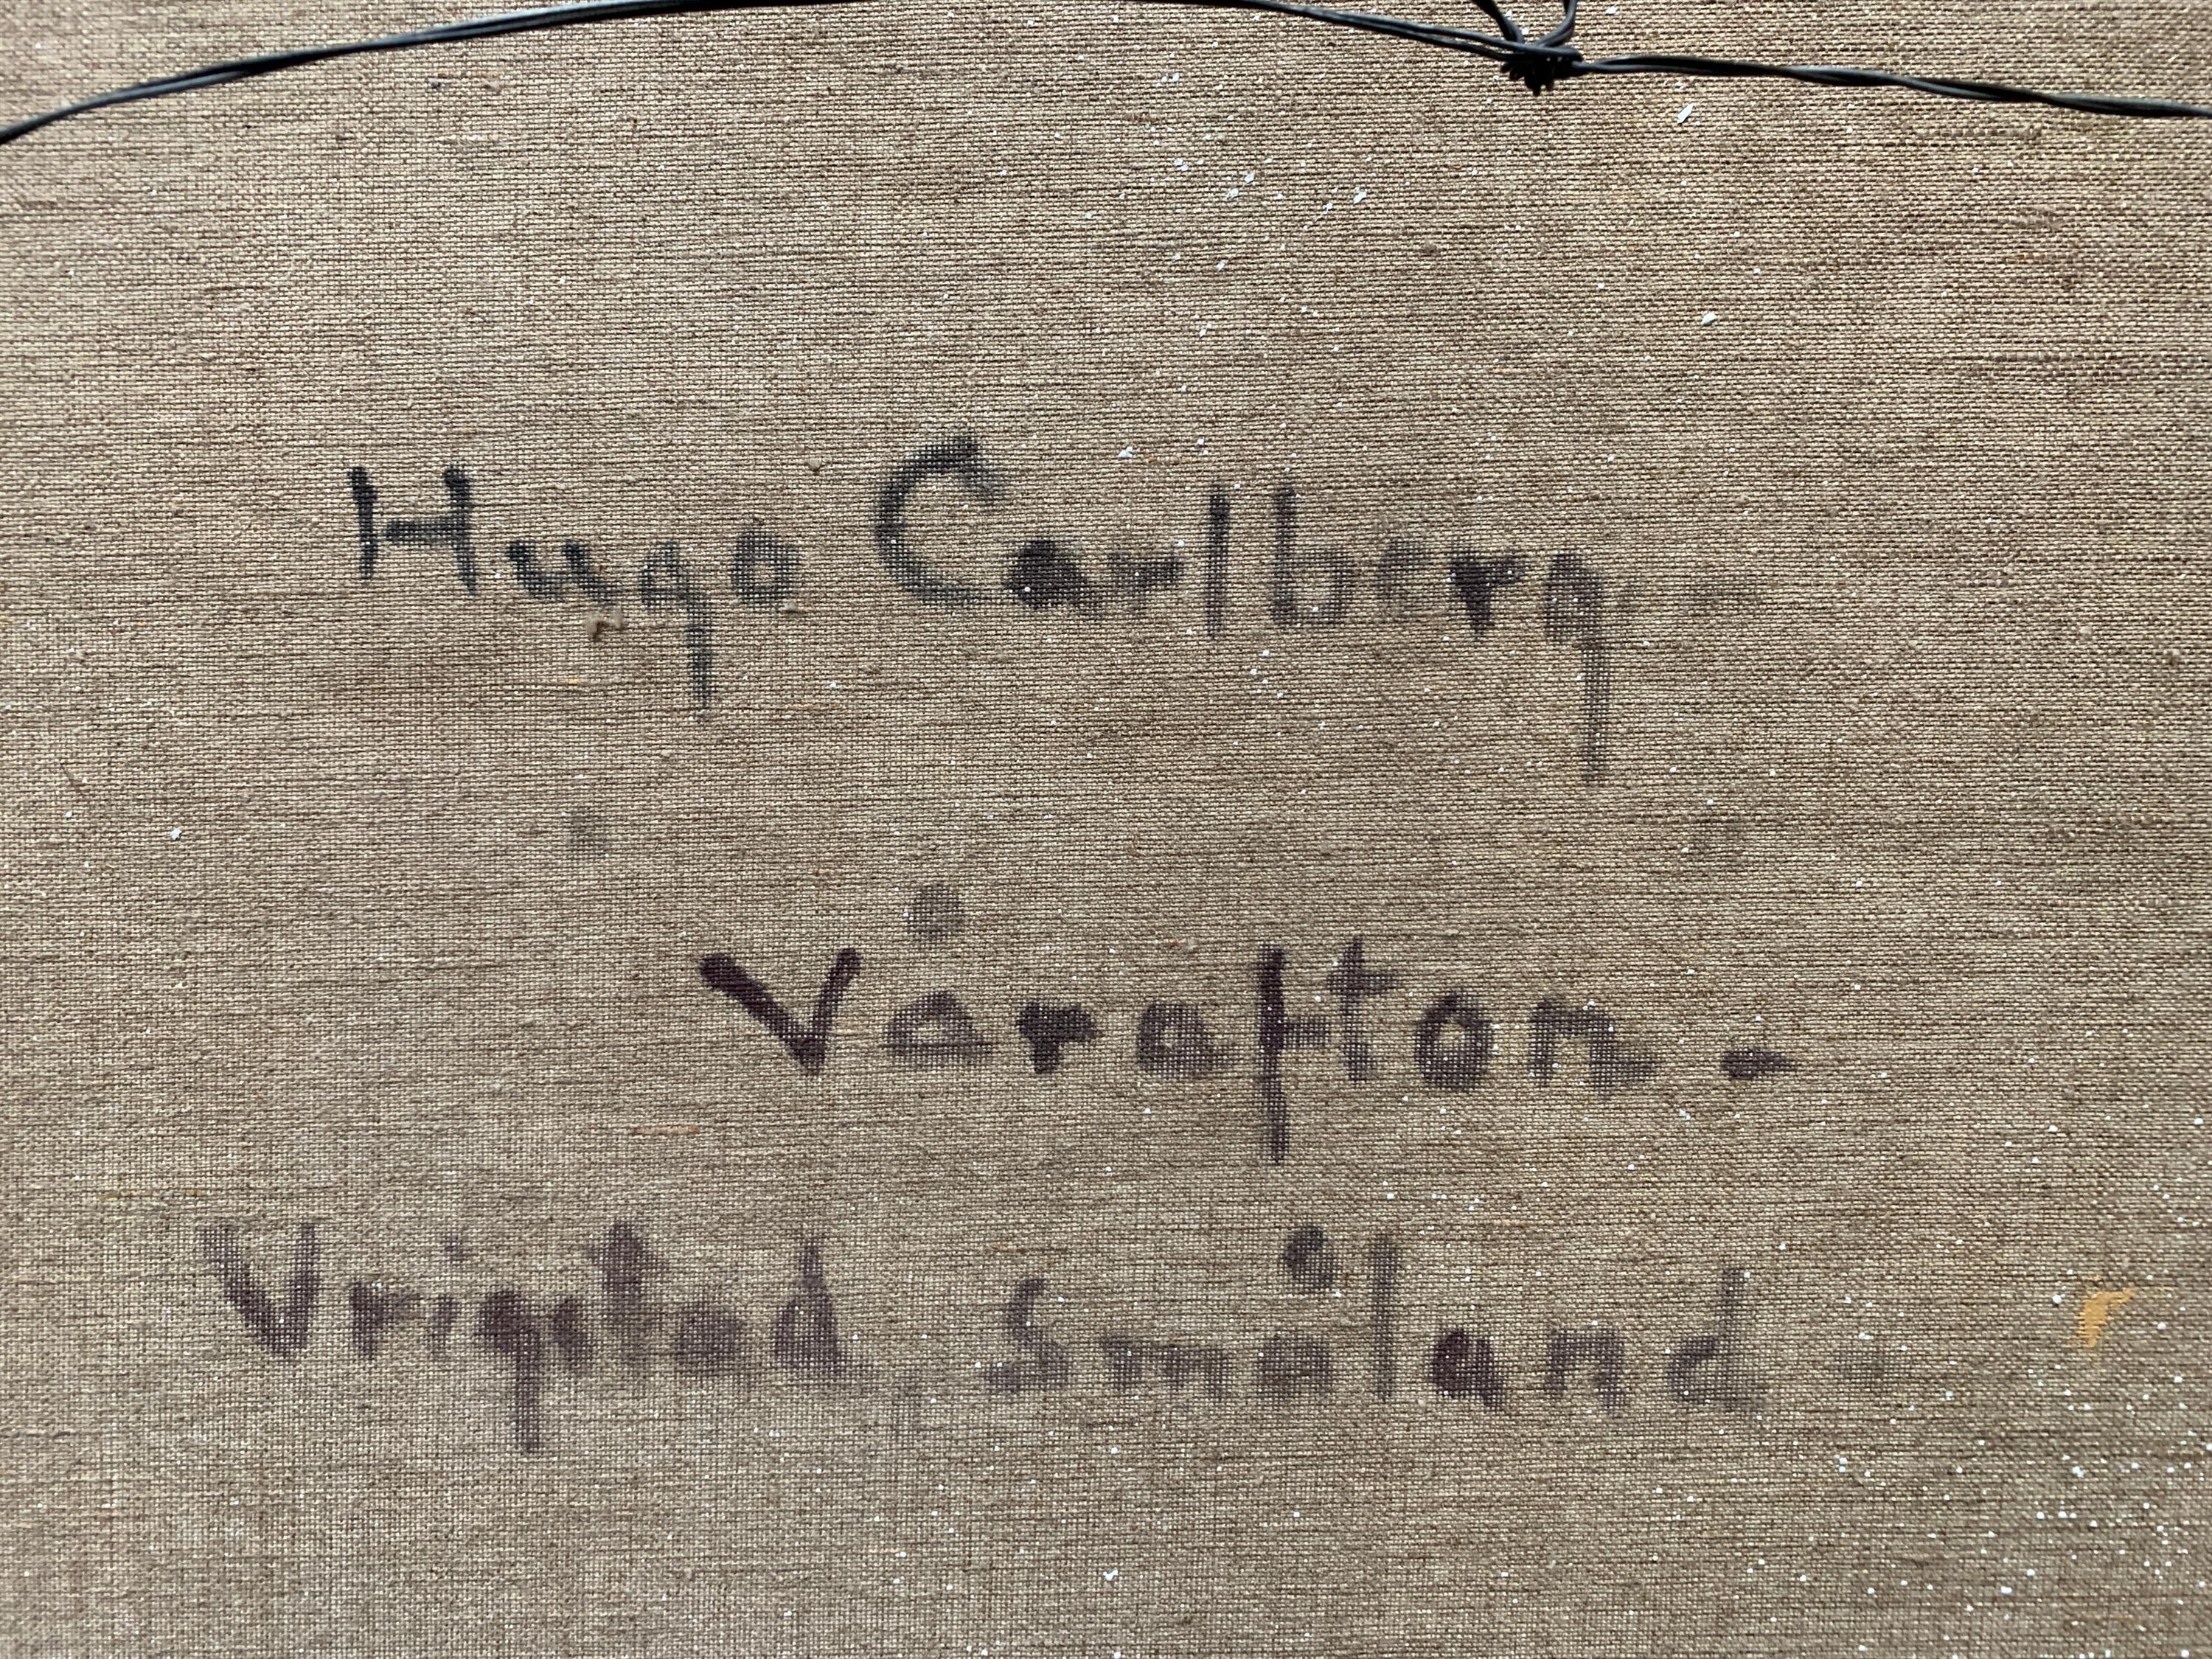 Hugo Carlberg
Vårafton -
Vrigstad Småland